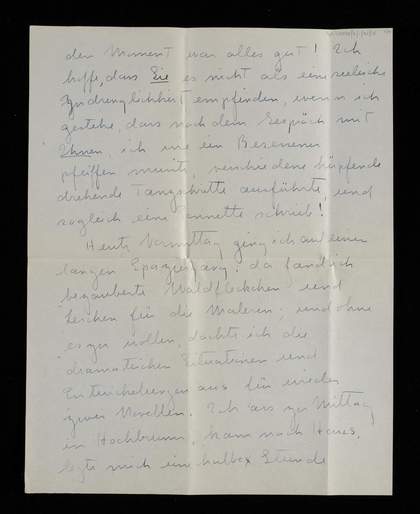 den Moment war alles gut! Ich
hoffe, dass Sie es nicht als eine seelische
Zudringlichkeit empfinden, wenn ich
gestehe, dass nach dem Gespräch mit
Ihnen, ich wie ein Besessener
pfeiffen musste, verschiedene hüpfende
drehende Tanzschritte ausführte, und
sogleich eine schrieb!
Heute Vormittag ging ich auf einen
langen Spaziergang: da fand ich
bezauberte Waldfleckchen und
für die Malerin; und ohne
es zu wollen, dachte ich die
dramatischen Situationen und
Entwickelungen aus für wieder
zwei Novellen. Ich ass zu Mittag
in Hochbrunn, kam nach Haus,
legte mich eine halbe Stunde